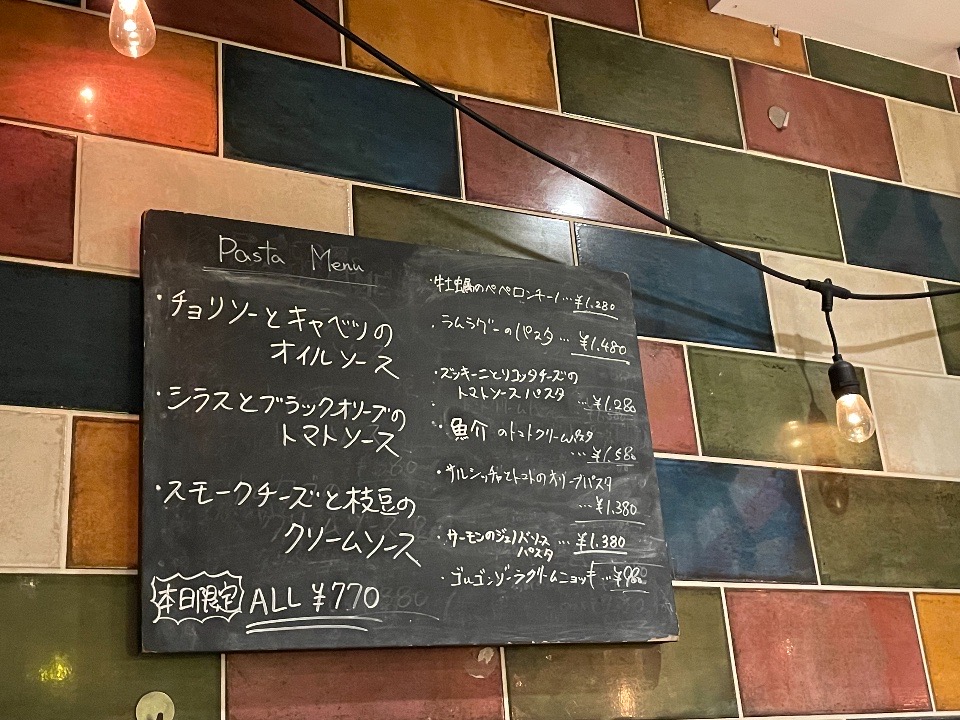 Pasta Menu
・チョリソーとキャベツの
オイルソース
・シラスとブラックオリーブの
トマトソース
・スモークチーズと枝豆の
クリームソース
本日限定 ALL ¥770
・牡蠣のペペロンチーノ…¥1.280
・ラムラグーのパスタ…¥1.480
・ズッキーニとリコッタチーズの
トマトソースパスタ …¥1.280
・魚介のトマトクリームパスタ
…¥1.580
・サルシッチャとトマトのオリーブパスタ
…¥1.380
・サーモンのジェノベソース …¥1.380
パスタ
・ゴルゴンゾーラクリームニョッキ…¥980